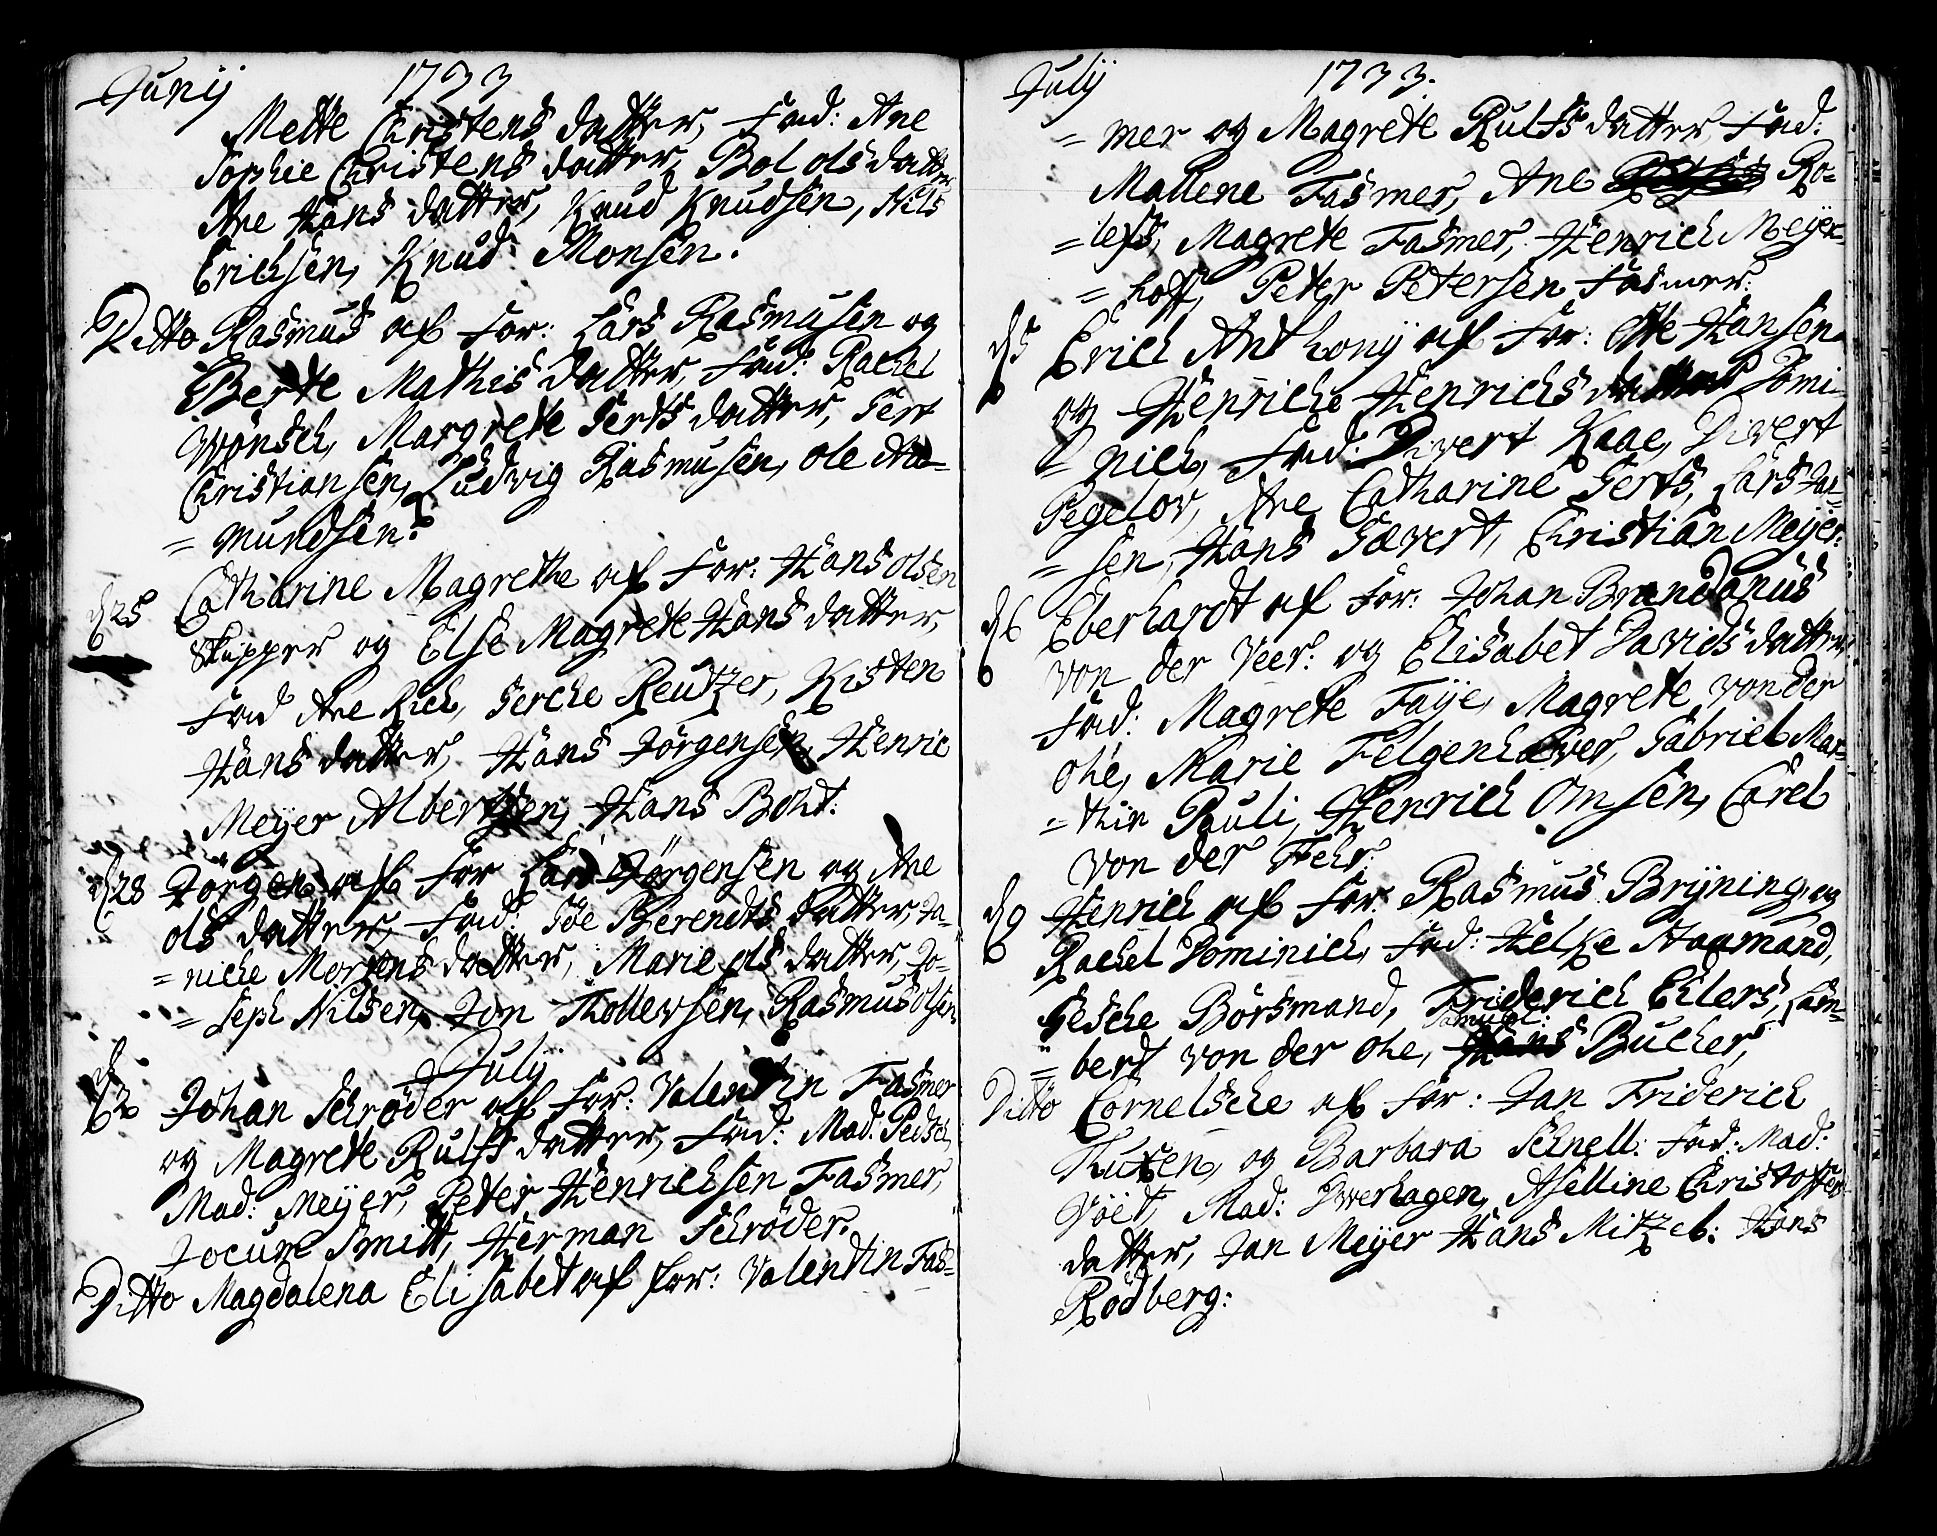 Junij 1733
Mette Christens datter, Fad: Ane
Sophie Christens datter, Bol ols datter
Ane Hans datter, Knud Knudsen, Nils
Erichsen, Knud Monsen.
Ditto Rasmus af For: Lars Rasmusen og
Berte Mathis datter, Fad: Rachel
Wönsch, Margrete Gerts datter, Gert
Christiansen, Ludvig Rasmusen, ole Aa=
= mundsen.
d 25 Catharine Magrethe af For: Hans olsen
Skipper og Else Magrete Hans datter,
Fad Ane Rich, Gerche Reutzer, Kisten
Hans datter, Hans Jörgensen, Henric
Meyer Albertsen, Hans Boht:
d 28 Jörgen af For Lars Jörgensen og Ane
ols datter, Fad: Söe Berendts datter, Ja=
= niche Mortens datter, Marie ols datter, Jo=
= seph Nilsen, Jon Thollevsen, Rasmus olsen
July
d 2 Johan Schröder af For: Valentin Fasmer
og Magrete Rulfs datter, Fad: Mad: Pedsch,
Mad: Meyer, Peter Henrichsen Fasmer,
Jocum Smitt, Herman Schröder.
Ditto Magdalena Elisabet af for: Valentin Fas=
July 1733.
= mer og Magrete Rulfs datter, Fad:
Mallene Fasmer, Ane Ro=
= lefs, Magrete Fasmer, Henrich Meyer
= hoff, Peter Petersen Fasmer.
d 5 Erich Anthonij af For: Otte Hansen
og Henriche Henrichs datter Domi
= nich, Fad: Divert Kaae, Divert
Pegelov, Ane Catharine Gerts, Lars Jan=
= sen, Hans Gævert, Christian Meyer.
d 6 Eberhardt af For: Johan Brandanus
von der Veer: og Elisabet Davids datter.
Fad: Magrete Faije, Magrete von der
Ohe, Marie Felgenhæver, Gabriel Mar=
= thin Pauli, Henrich Omsen, Carel
von der Fehr:
d 9 Henrich af For: Rasmus Bryning og
Rachel Dominich, Fad: Helke Haamand,
Gesche Börsmand, Friderich Ehlers, Lam=
Samuel:
= bert von der Ohe, Hans Bucher,
Ditto Cornelsche af For: Jan Friderich
Thuren, og Barbara Schnell: Fad: Mad:
Vöet, Mad: Dverhagen, Aselline Christoffers
datter, Jan Meyer Hans Mitzel: Hans
Rödberg: